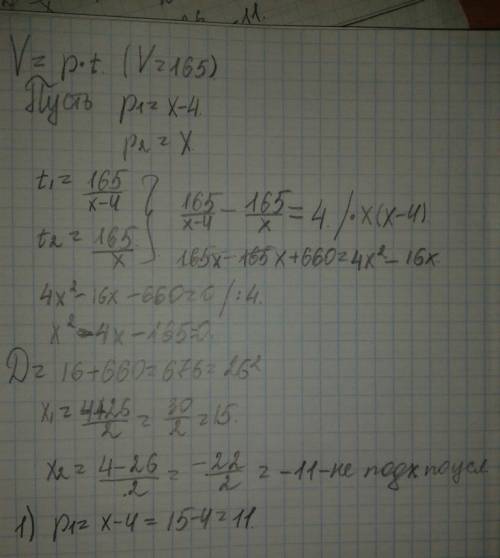 V = p·t. (V=165)
Пусть p₁ = x-4.
p₂ = x
t₁ = 165/(x-4)
t₂ = 165/x
165/(x-4) - 165/x = 4 /·x(x-4)
165x - 165x + 660 = 4x² - 16x.
4x² - 16x - 660 = 0 /:4.
x² - 4x - 165 = 0.
D = 16 + 660 = 676 = 26²
x₁ = (4+26)/2 = 30/2 = 15.
x₂ = (4-26)/2 = -22/2 = -11 - не подх по усл
1) p₁ = x-4 = 15-4 = 11.